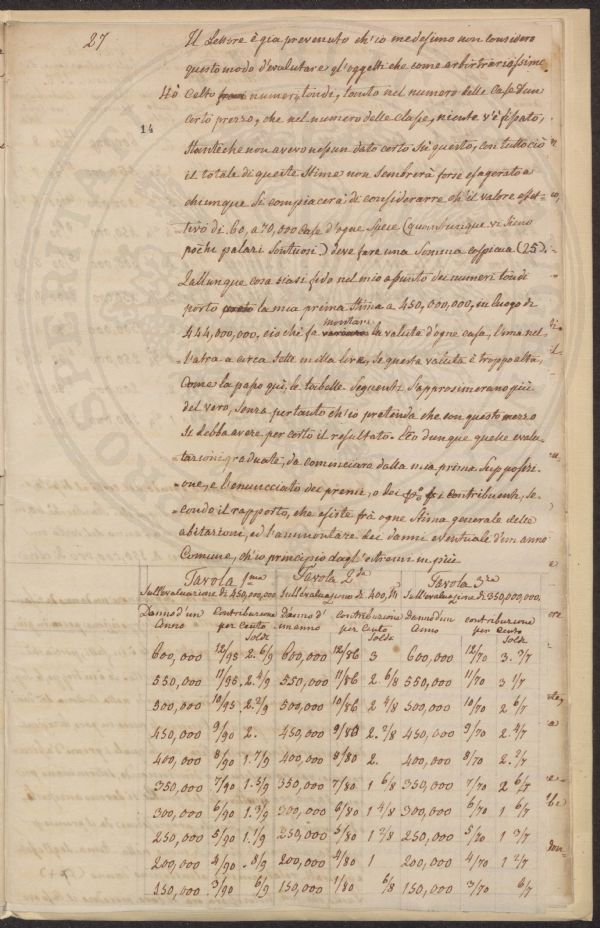 27
Il Lettore è gia prevenuto ch'io medesimo non considero
questo modo d'evalutare gl'oggetti che come arbitrariissimo.
Hò Celto numeri tondi, tanto nel numero delle Case d'un
14
certo prezzo, che nel numero delle Classe, niente v'è fissato,
stanteche non avevo nessun dato certo sù questo, con tutto ciò
il totale di queste stime non sembrerà forse esagerato a
chiunque si compiacerà di considerarre ch'il valore effet-
tivo di 60, a 70,000 Case d'ogni Specie (quantunque vi sieno
pochi palazzi sontuosi) deve fare una Somma cospicua (25).
Qallunque cosa siasi fido nel mio assunto dei numeri tondi
porto la mia prima Stima a 450,000,000, in luogo di
montare
444,000,000, ciò che fa la valuta d'ogni casa, l'una nel-
l'altra a circa sette milla lire, se questa valuta è troppo alta,
Come la papo qui, le tabelle seguenti s'approssimerano più
del vero, senza per tanto ch'io pretenda che con questo mezzo
si debba avere per certo il resultato. Ecco dunque quelle evalu-
tazioni graduate, da cominciare dalla mia prima Supposizi-
one, e l'enuncciato dei premi, o dei contribuenti, se-
condo il rapporto, che esiste frà ogni Stima generale delle
abitazioni, ed l'ammontare dei danni eventuale d'un anno
Comune, ch'io principio dagl'estremi in più
Tavola 1ma Tavola 2da Tavola 3za
Sull'evaluazione di 450,000,000 sull'evaluazione di 400,m Sull'evaluazione di 350,000,000.
Danno d'un Contribuzione Danno d' contribuzione Danno d'un contribuzione
Anno per Cento un anno per Cento Anno per Cento
Soldi Soldi Soldi
600,000 12/95 2. 6/9 600,000 12/86 3 600,000 12/70 3. 3/7
550,000 11/95 2. 4/9 550,000 11/86 2. 6/8 550,000 11/70 3 1/7
500,000 10/95 2. 2/9 500,000 10/86 2 4/8 500,000 10/70 2 6/7
450,000 9/90 2. 450,000 9/80 2. 2/8 450,000 9/70 2. 4/7
400,000 8/90 1. 7/9 400,000 8/80 2. 400,000 8/70 2. 2/7
350,000 7/90 1. 5/9 350,000 7/80 1 6/8 350,000 7/70 2 6/7
300,000 6/90 1. 3/9 300,000 6/80 1 4/8 300,000 6/70 1 6/7
250,000 5/90 1. 1/9 250,000 5/80 1 2/8 250,000 5/70 1 3/7
200,000 4/90 8/9 200,000 4/80 1 200,000 4/70 1 2/7
150,000 3/90 6/9 150,000 1/80 6/8 150,000 3/70 6/7